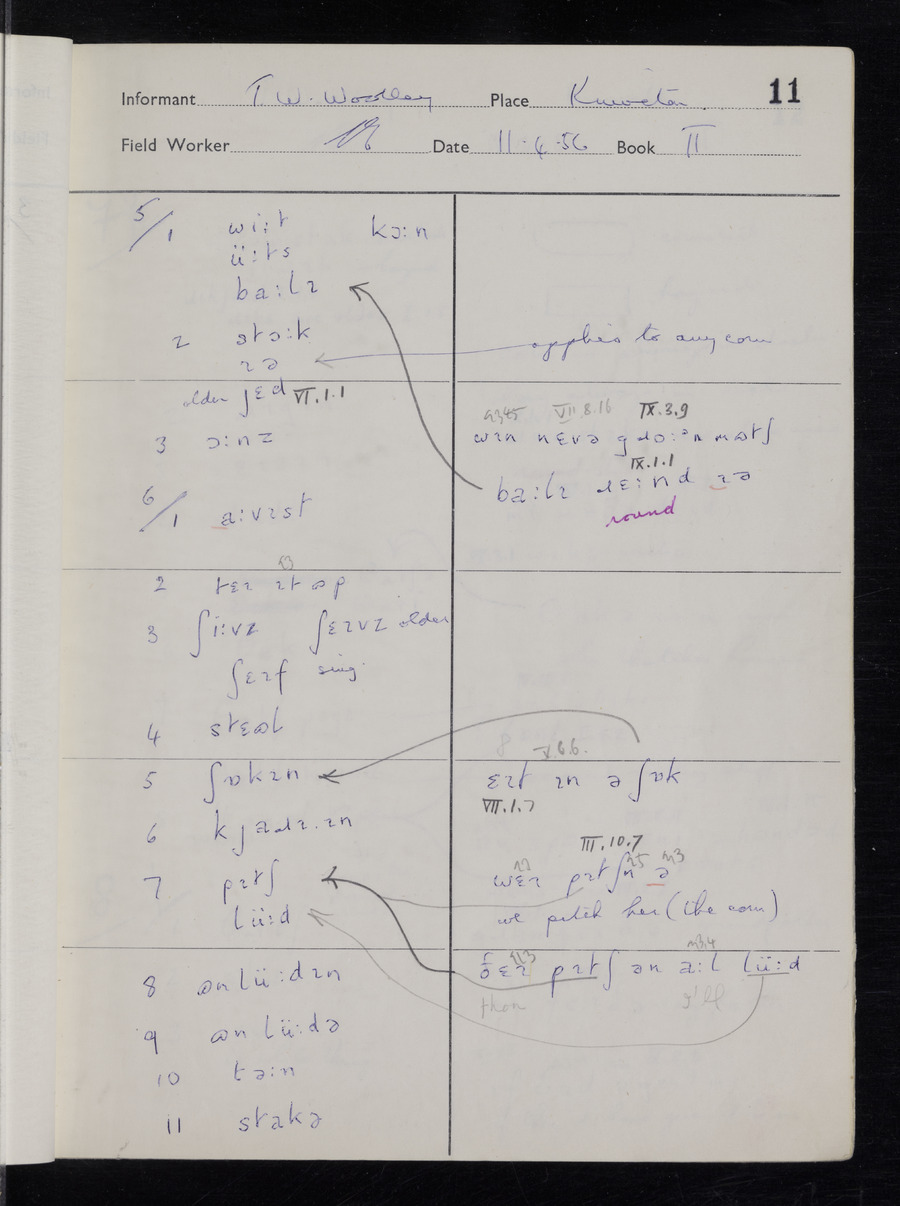 Informant T. W. Woodley Place Kniveton 11
Field Worker Date 11·4·56 Book II
5/1 wiːt kɔːn
üːts
baːlɪ
2 stɔːk
ɪə applies to any corn
older ʃɛd VI.1.1
VII.8.16 IX.3.9
3 ɔːnz
wɪn nɛvə
IX.1.1
baːlɪ ɹɛːnd ɪə
round
6/1 aːvɪst
2 tɛɪ ɪt ɒp
3 ʃiːvz ʃɛɪvz older
ʃɛɪf sing.
4 stɛɷl
V.6.6.
5 ʃɒkɪn
ɛɪt ɪn ə ʃɒk
VII.1.7
6 kjaɹɪ.ɪn
III.10.7
7 pɪtʃ
wɛɪ pɪtʃ ə
lüːd
we pitch her (the corn)
ðɛɪ pɪtʃ ən aːl lüːd
thou I'll
8 ɷnlüːdɪn
9 ɷnlüːdə
10 təːn
11 stakə